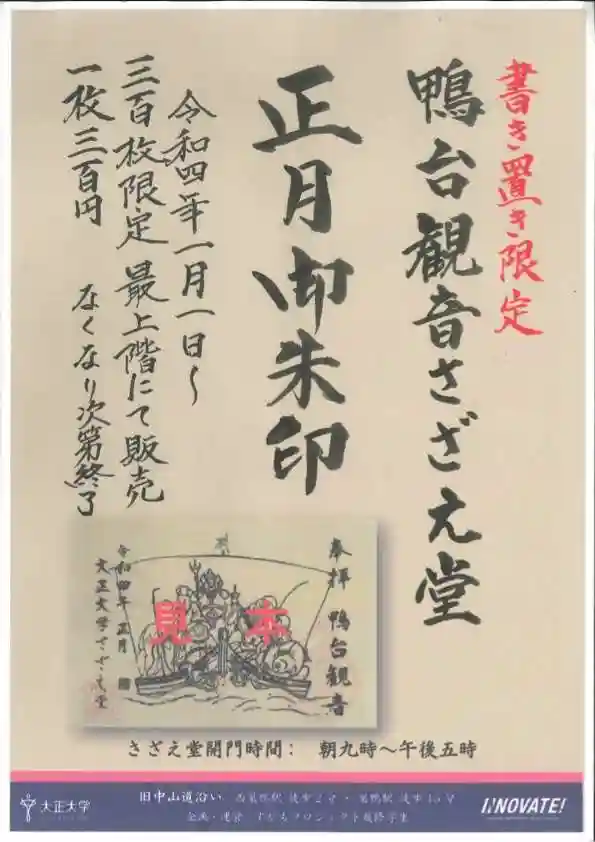 書き置き限定
鴨台観音さざえ堂
正月御朱印
令和四年一月一日〜
三百枚限定 最上階にて販売
一枚三百円 なくなり次第終了
奉拝 鴨台観音
見本
令和四年正月
大正大学さざえ堂
さざえ堂開門時間： 朝九時〜午後五時
大正大学
旧中山道沿い 西巣鴨駅 徒歩
巣鴨駅 徒歩
企画・運営
INNOVATE!